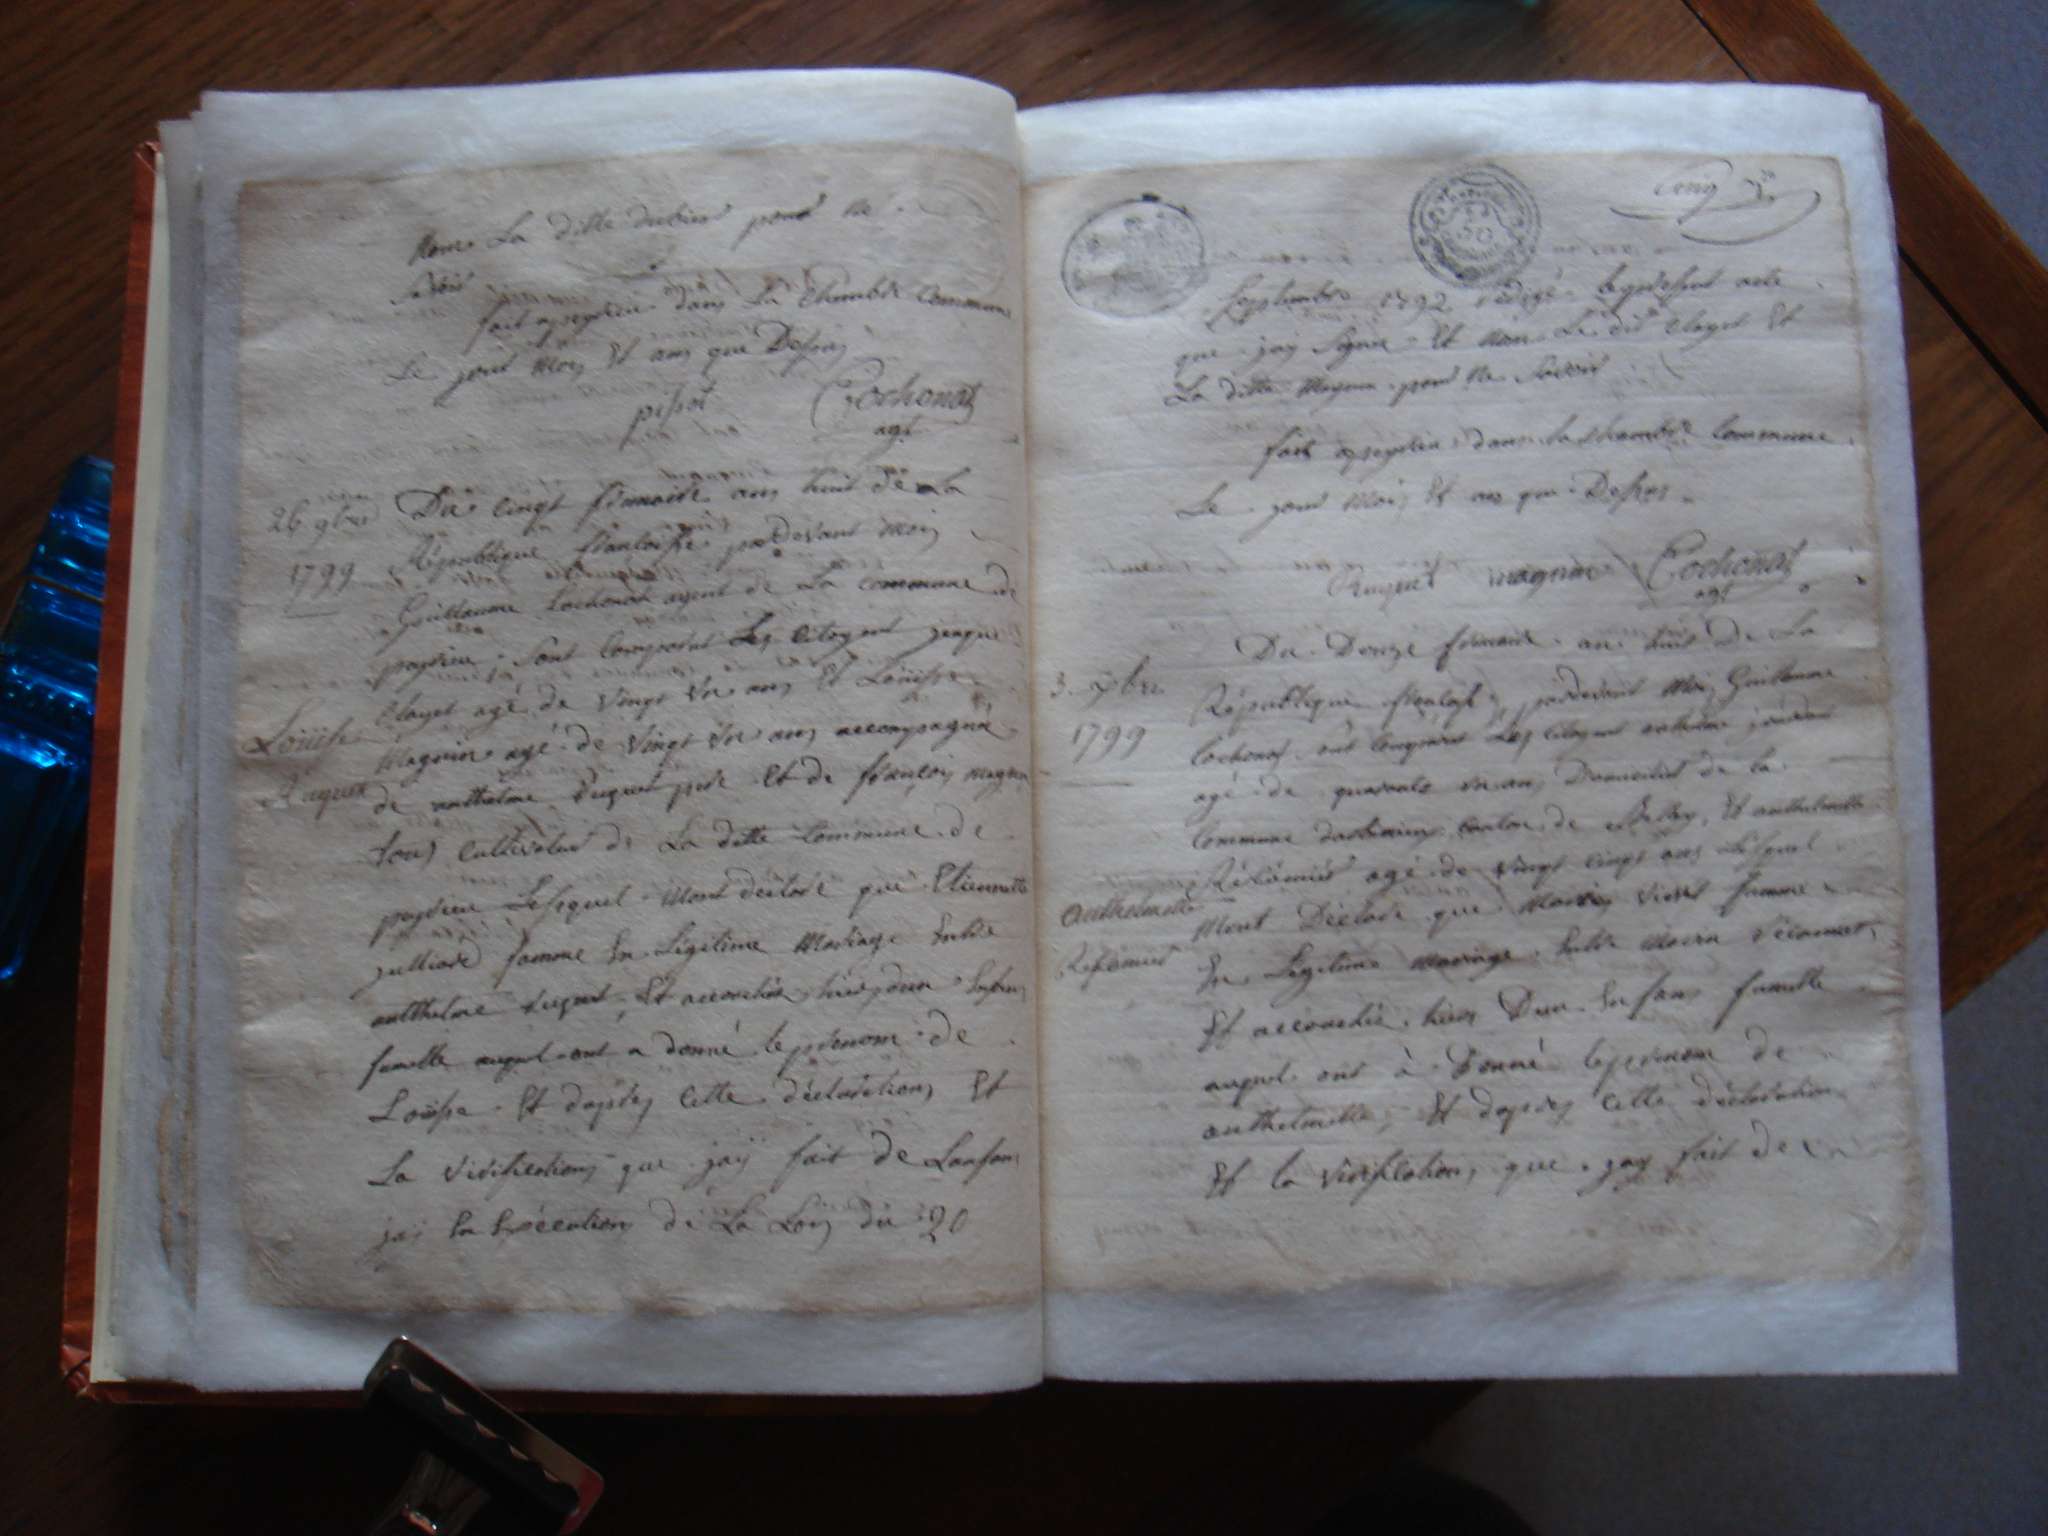 non La ditte pour ne
savoir
fait a peyrieu dans La Chambre Commune
Le jour mois Et ans que Dessus
pissot Cochonat
agt
26 9bre
1799
Du cinqt frimaire ans huit de La
République francoisse pardevant mois
Guillaume Cochonat agent de La commune de
peyrieu, sont comparut Les citoyent jeaque
Clayet agé de vingt un ans Et Loüisse
Magnin agé de vingt un ans accompagné
Loüisse
Ruquet
de anthelme Ruquet pere Et de françois magnin
tous cultivateur de La ditte Commune de
peyrieu Lesequel mont déclaré que Etiennette
julliard famme En Légitime Mariage Entre
anthelme ruquet, Et accouchée hiers d'un Enfans
famelle auquel ont a donné le prenom de
Loüisse Et dapres cette déclarations Et
La vérifications que jay fait de Lanfans
jai En Exécution de La Loy du 20
Septembre 1792 rédigé le présent acte
que jay signée Et non Le dit Clayet Et
La ditte Magnin pour ne savoir
fait a peyrieu dans la chambre Commune
Le jour Mois Et ans que Dessus
Ruquet magnin Cochonat
agt
3 Xbre
1799
Du Douze frimaire an huit De La
République , pardevant Moi, Guillaume
Cochonat ont comparut Les citoyent anthelme
agé de quarante un ans Domicilié de la
Commune canton de Belley, Et anthelmette
agé de vingt cinqt ans Lesquel
Anthelmette
Mont Déclaré que famme
En Légitime Mariage Entre
Et accouchée hiers Dun Enfans famelle
auquel ont à Donné le prenom de
anthelmette, Et dapres cette déclaration
Et la vérifications que jay fait de